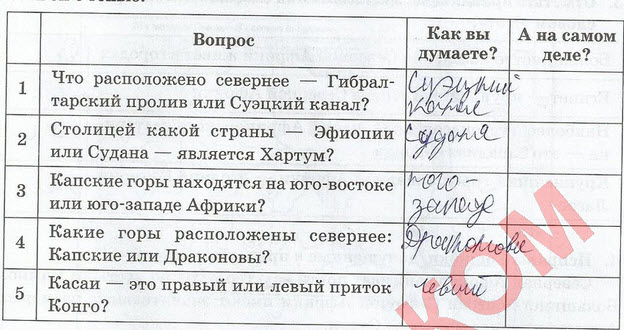 Вопрос
Как вы
думаете?
А на самом
деле?
1
Что расположено севернее — Гибрал-
тарский пролив или Суэцкий канал?
Суэцкий
канал
2
Столицей какой страны — Эфиопии
или Судана — является Хартум?
Судана
3
Капские горы находятся на юго-востоке
или юго-западе Африки?
юго-
западе
4
Какие горы расположены севернее:
Капские или Драконовы?
Драконовы
5
Касаи — это правый или левый приток
Конго?
левый
КОМ